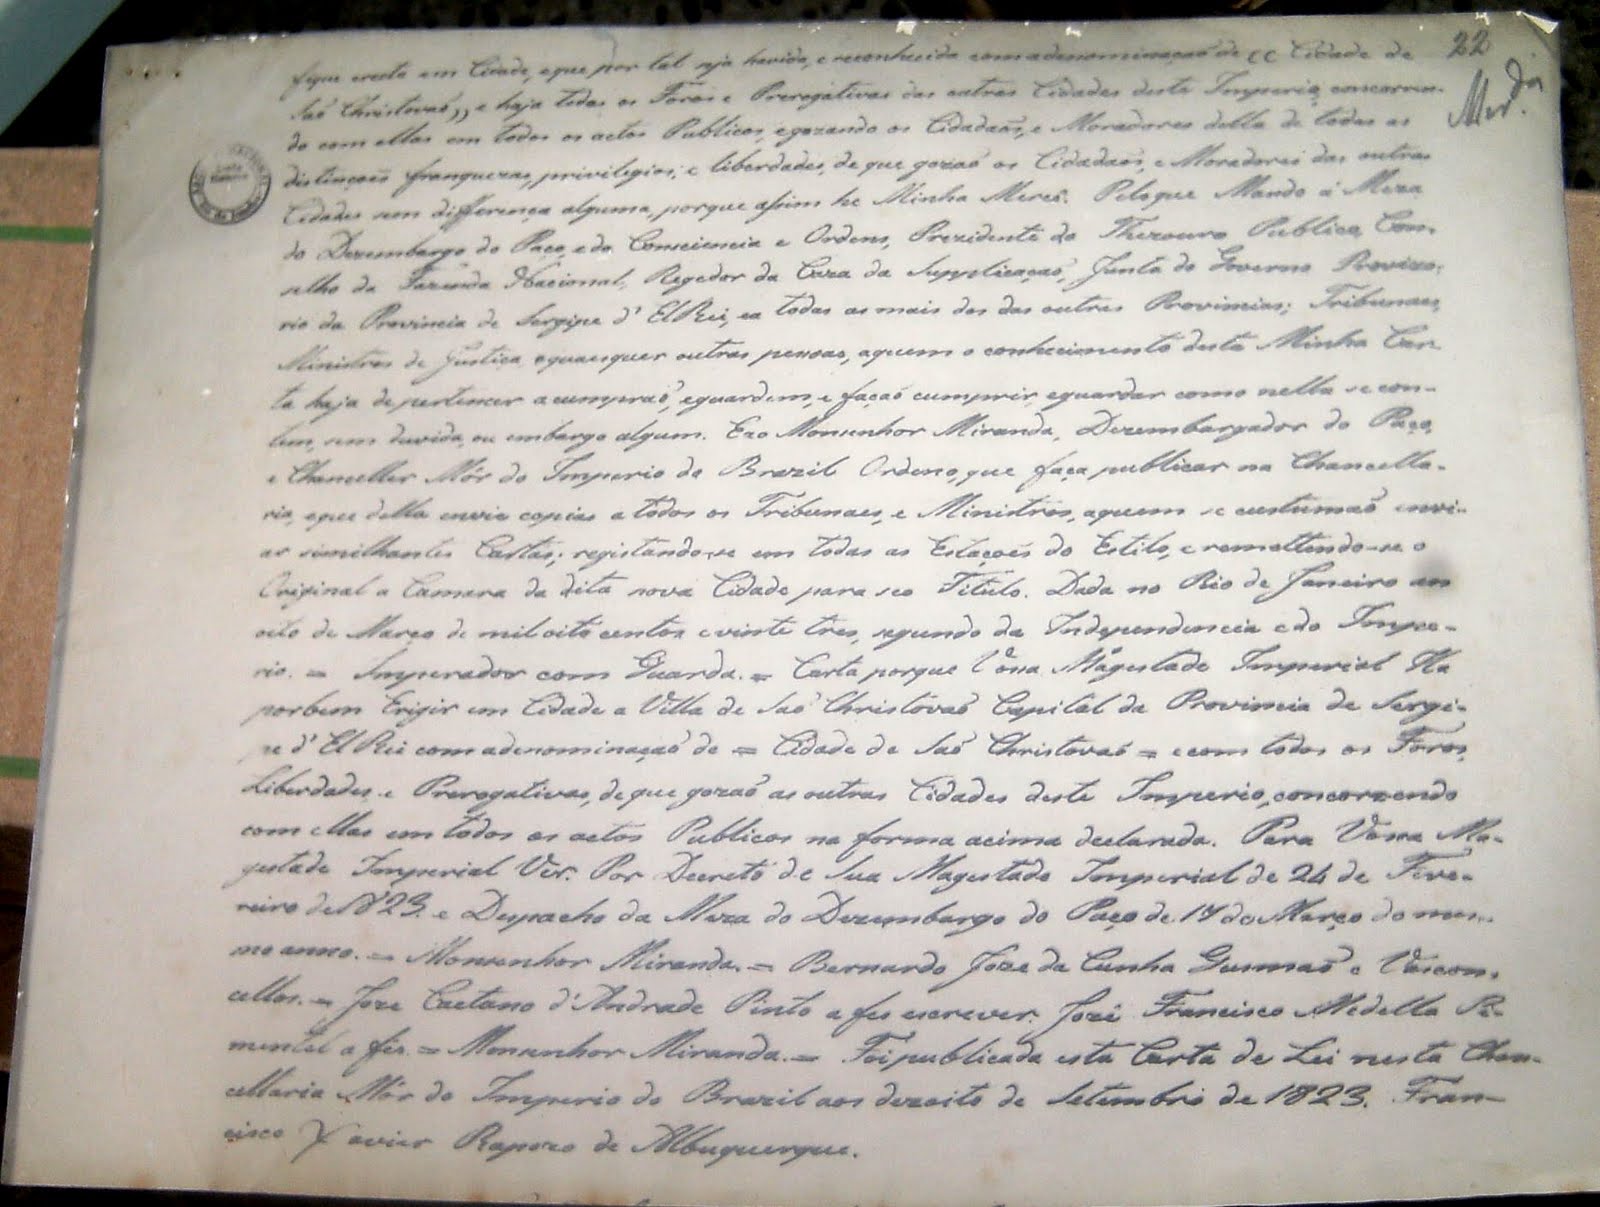 22
fique erecta em Cidade, e que por tal seja havida, e reconhecida com a denominaçaõ de (( Cidade de
Saõ Christovaõ)) e haja todos os Foros e Prerogativas das outras Cidades deste Imperio, concorren-
do com ellas em todos os actos Publicos, e gozando os Cidadaõs, e Moradores della de todas as
distinçoẽs franquezas, privilegios, e liberdades, de que gozaõ os Cidadaõs, e Moradores das outras
Cidades sem differença alguma, porque assim he Minha Mercê. Pelo que Mando á Meza
do Dezembargo do Paço, e da Consciencia e Ordens, Prezidente do Thezouro Publico, Con-
selho da Fazenda Nacional, Regedor da Caza da Supplicaçaõ, Junta do Governo Provizo-
rio da Provincia de Sergipe d' El Rei, e a todas as mais dos das outras Provincias; Tribunaes,
Ministros de Justiça e quaesquer outras pessoas, a quem o conhecimento desta Minha Car-
ta haja de pertencer a cumpraõ, e guardem, e façaõ cumprir, e guardar como nella se con-
tem, sem duvida, ou embargo algum. E ao Monsenhor Miranda, Dezembargador do Paço,
e Chanceller Mór do Imperio do Brazil Ordeno, que faça publicar na Chancella-
ria, e que della envie copias a todos os Tribunaes, e Ministros, a quem se custumaõ envi-
ar similhantes Cartas; registando-se em todas as Estaçoẽs do Estilo, e remettendo-se o
Original a Camara da dita nova Cidade para seo Titulo. Dada no Rio de Janeiro aos
oito de Março de mil oito centos e vinte tres, segundo da Independencia e do Impe-
rio. = Imperador com Guarda. = Carta porque Vossa Magestade Imperial Ha
por bem Erigir em Cidade a Villa de Saõ Christovaõ Capital da Provincia de Sergi-
pe d' El Rei com a denominaçaõ de = Cidade de Saõ Christovaõ = e com todos os Foros,
Liberdades e Prerogativas, de que gozaõ as outras Cidades deste Imperio, concorrendo
com ellas em todos os actos Publicos na forma acima declarada. Para Vossa Ma-
gestade Imperial Ver. Por Decreto de Sua Magestade Imperial de 24 de Feve-
reiro de 1823. e Despacho da Meza do Dezembargo do Paço de 17 do Março do mes-
mo anno. = Monsenhor Miranda. = Bernardo Joze da Cunha Gusmaõ e Vascon-
cellos. = Joze Caetano d'Andrade Pinto a fes escrever. Jozé Francisco Medella Pi-
mentel a fez. = Monsenhor Miranda. = Foi publicada esta Carta de Lei nesta Chan-
cellaria Mór do Imperio do Brazil aos dezoito de Setembro de 1823. Fran-
cisco Xavier Rapozo de Albuquerque.